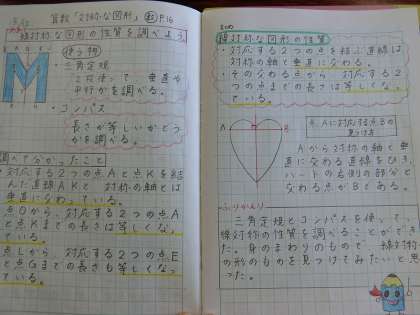 算数「対称な図形」 P.16
線対称な図形の性質を調べよう。
使う物
・三角定規
2枚使って、垂直や
平行かを調べる。
・コンパス
長さが等しいかどう
かを調べる。
調べて分かったこと
対応する2つの点Aと点Kを結
んだ直線AKと、対称の軸とは
垂直に交わっている。
対応する2つの点A
と点Kまでの長さは等しくなっ
ている。
点Lから、対応する2つの点E
と点Gまでの長さも等しくなっ
ている。
まとめ
線対称な図形の性質
・対応する2つの点を結ぶ直線は、
対称の軸と垂直に交わる。
・その交わる点から、対応する2
つの点までの長さは等しくなっ
ている。
A
B
点Aに対応する点Bの
見つけ方
Aから対称の軸と垂
直に交わる直線をひき、
ハートの右側の部分と
交わる点がBである。
ふりかえり
三角定規とコンパスを使って、
線対称の性質を調べることができ
た。身のまわりのもので、線対称
の形のものを見つけてみたいと思
った。